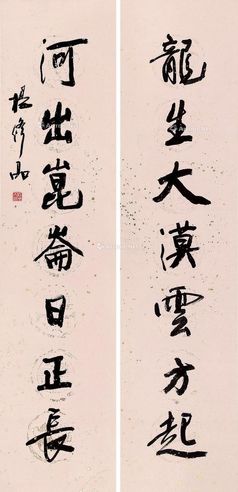 龍生大漠雲方起
河出崑崙日正長